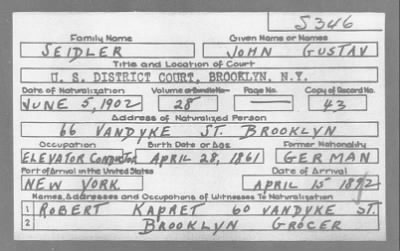 S346
Family Name Given Name or Names
SEIDLER JOHN GUSTAV
Title and Location of Court
U. S. DISTRICT COURT, BROOKLYN, N.Y.
Date of Naturalization Volume or Bundle No. Page No. Copy of Record No.
JUNE 5, 1902 28 — 43
Address of Naturalized Person
66 VANDYKE ST. BROOKLYN
Occupation Birth Date or Age Former Nationality
ELEVATOR CONDUCTOR APRIL 28, 1861 GERMAN
Port of Arrival in the United States Date of Arrival
NEW YORK APRIL 15 1892
Names, Addresses and Occupations of Witnesses To Naturalization
1 ROBERT KAPRET 60 VANDYKE ST.
2 BROOKLYN GROCER